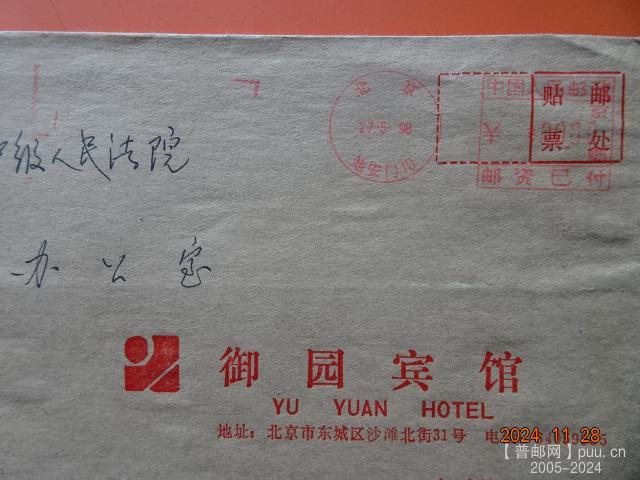 北京
27·5·98
中国人民邮政
邮资已付
贴邮
票处
级人民法院
办公室
御园宾馆
YU YUAN HOTEL
地址：北京市东城区沙滩北街31号 电
2024 11 28
【普邮网】puu.cn
2005-2024